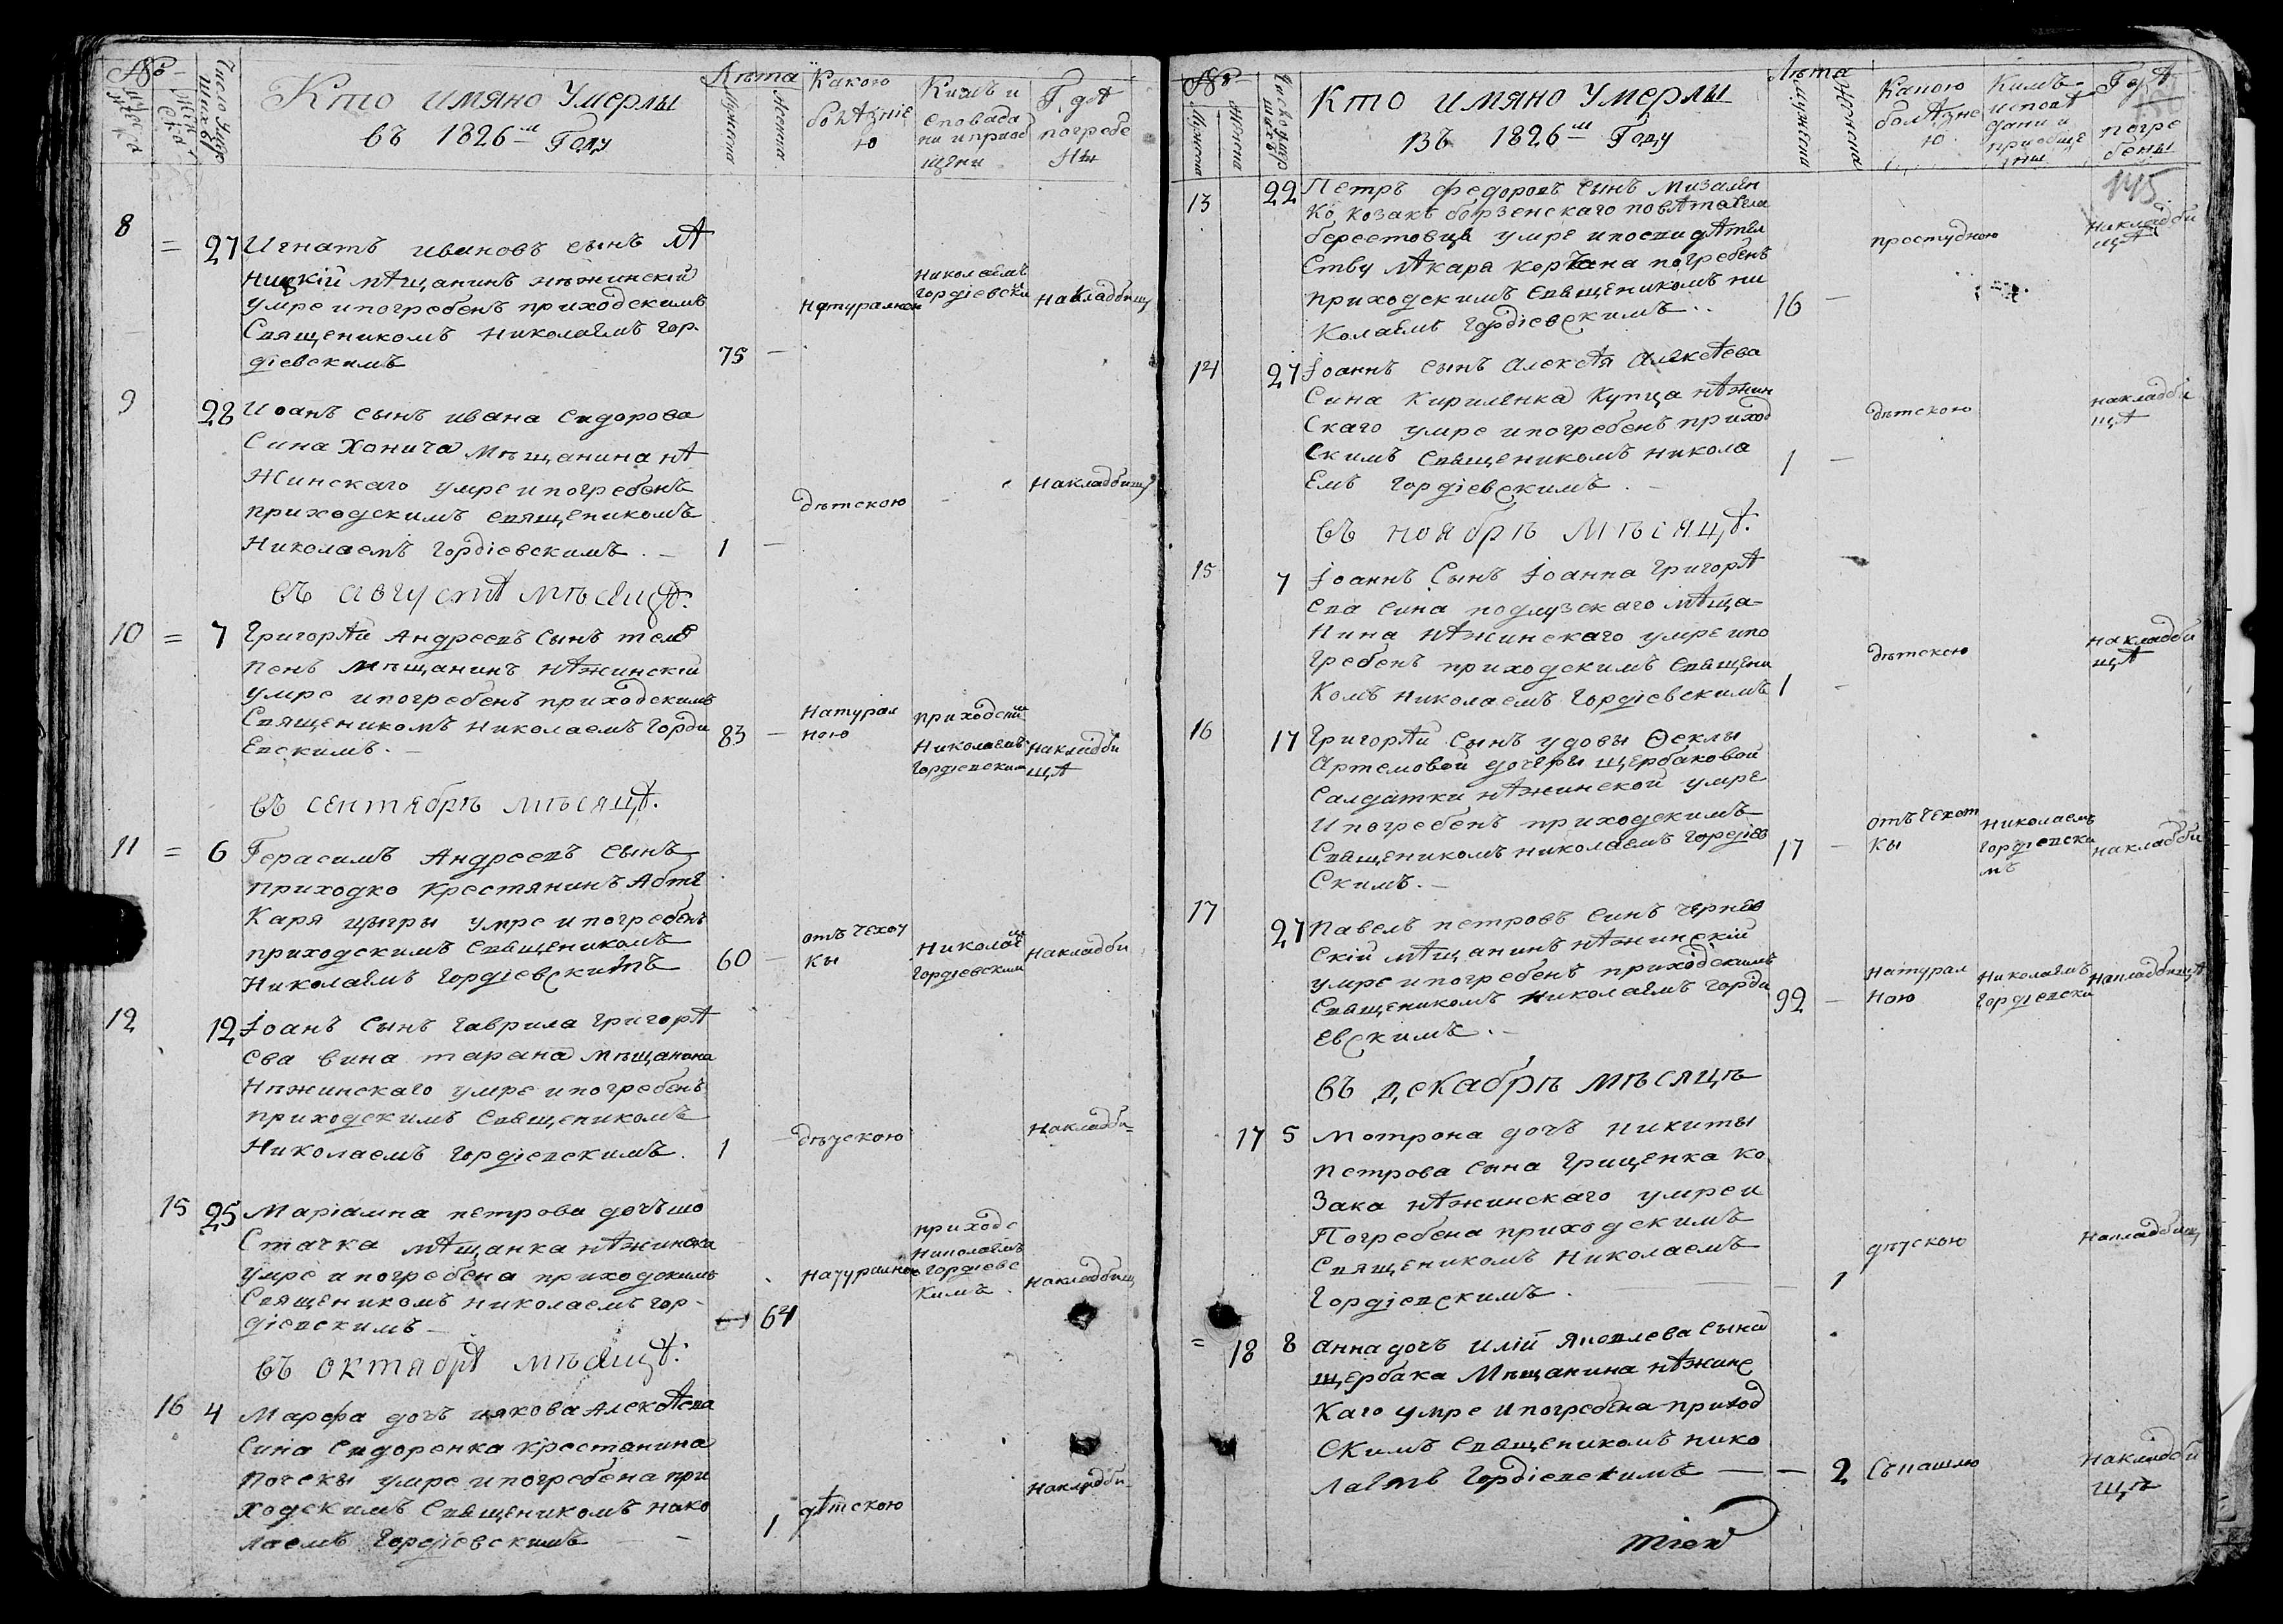 №
Число умер
шихъ
Кто имяно умерлы
въ 1826м Году
Лѣта
Мужеска
Женска
Какою
болѣзніе
ю
Кимъ и
сповѣда
ни и приоб
щени
Гдѣ
погребе
ны
8 = 27 Игнатъ ивановъ сынъ лѣ
ницкій мѣщанинъ нѣжинскій
умре и погребенъ приходскимъ
Священикомъ николаемъ гор
діевскимъ
75 —
натуралною
николаемъ
гордіевски
на кладбищ
9 28 Иоанъ сынъ ивана сидорова
Сина Хонича мѣщанина нѣ
жинскаго умре и погребенъ
приходскимъ священикомъ
Николаемъ гордіевскимъ. —
1 —
дѣтскою
На кладбищ
въ августѣ мѣсяцѣ.
10 = 7 Григорѣй Андреевъ сынъ теле
пенъ мѣщанинъ нѣжинскій
умре и погребенъ приходскимъ
Священикомъ николаемъ горди
евскимъ. —
83 —
натурал
ною
приходский
николаемъ
гордіевским
на кладби
щѣ
въ сентябрѣ мѣсяцѣ.
11 = 6 Герасимъ Андреевъ сынъ
приходко крестянинъ Абте
каря цыгры умре и погребенъ
приходскимъ священикомъ
Николаемъ гордіевскимъ
60 —
отъ чехоу
кы
николаем
гордіевским
на кладби
12 12 Іоанъ сынъ гаврила григорѣ
ева сина тарана мѣщанина
Нѣжинскаго умре и погребенъ
приходскимъ священикомъ
Николаемъ гордіевскимъ.
1 —
дѣтскою
На кладби=
15 25 Маріамна петрова дочъ шо
Стачка мѣщанка нѣжинска
умре и погребена приходскимъ
Священикомъ николаемъ гор-
діевскимъ —
64
натуралною
приходс
николаемъ
гордіевс
кимъ.
на кладбищ
въ октябрѣ мѣсяцѣ.
16 4 Марфа дочъ иякова Алексѣева
Сина сидоренка крестянина
Почекы умре и погребена при
ходскимъ священикомъ нико
лаемъ гордіевскимъ —
1
дѣтскою
на кладби-
№
Мужеска
Женска
Число умер
шихъ
Кто имяно умерлы
въ 1826м Году
Лѣта
Мужеска
Женска
Какою
болѣзне
ю
Кимъ
исповѣ
дани и
приобще
ны
Гдѣ
погре
бены
145
13 22 Петръ федоровъ сынъ мизален
ко козакъ борзенскаго повѣта села
берестовца умре
приходскимъ священикомъ ни
колаемъ гордіевскимъ..
16 —
простудною
на кладби
щѣ
14 27 Іоаннъ сынъ алексѣя алексѣева
Сина кириленка купца нѣжин
Скаго умре и погребенъ приход
Скимъ священикомъ никола
Емъ гордіевскимъ. —
1 —
дѣтскою
на кладби
щѣ
въ ноябрѣ мѣсяцѣ.
15 7 Іоаннъ сынъ Іоанна григорѣ
ева сина подлузскаго мѣща-
нина нѣжинскаго умре и по
гребенъ приходскимъ священи
комъ николаемъ гордіевскимъ
1 -
дѣтскою
на кладби
щѣ
16 17 Григорѣй сынъ удовы Феклы
Артемовой дочеры щербаковой
Салдатки нѣжинской умре
И погребенъ приходскимъ
Священикомъ николаемъ гордіев
Скимъ. —
17 —
отъ чехот
кы
николаемъ
гордіевски
мъ
на кладби
17 27 Павелъ петровъ синъ чернев
Скій мѣщанинъ нѣжинскій
умре и погребенъ приходскимъ
Священикомъ николаемъ горди
евскимъ. —
92 —
натурал
ною
николаемъ
гордіевски
на кладбищѣ
въ декабрѣ мѣсяцѣ
17 5 Мотрона дочъ никиты
Петрова сына грищенка ко
зака нѣжинскаго умре и
Погребена приходскимъ
Священикомъ николаемъ
Гордіевскимъ.
1
дѣтскою
на кладбищ
= 18 8 Анна дочъ илій яковлева сына
щербака мѣщанина нѣжинс
каго умре и погребена приход
скимъ священикомъ нико
лаемъ гордіевскимъ —
— 2
Съкашлю
на кладби
щѣ